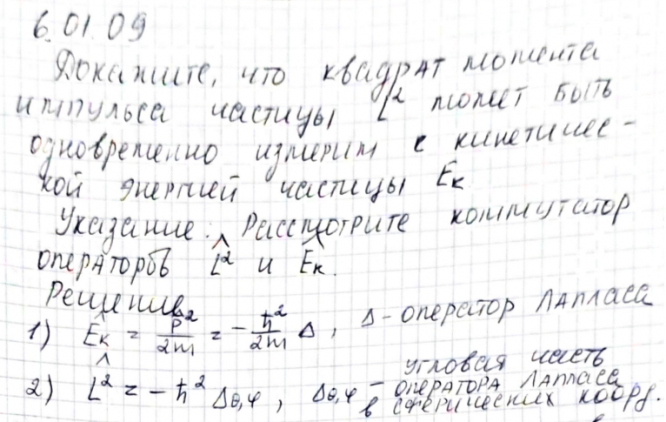 6.01.09
Докажите, что квадрат момента
импульса частицы L̂² может быть
одновременно измерим с кинетичес-
кой энергией частицы Eк
Указание: Рассмотрите коммутатор
операторов L̂² и Êк.
Решение
1) Êк = p̂²/2m = -ħ²/2m Δ, Δ - оператор Лапласа
2) L̂² = -ħ² Δθ,φ, Δθ,φ - угловая часть
оператора Лапласа
в сферических коорд.